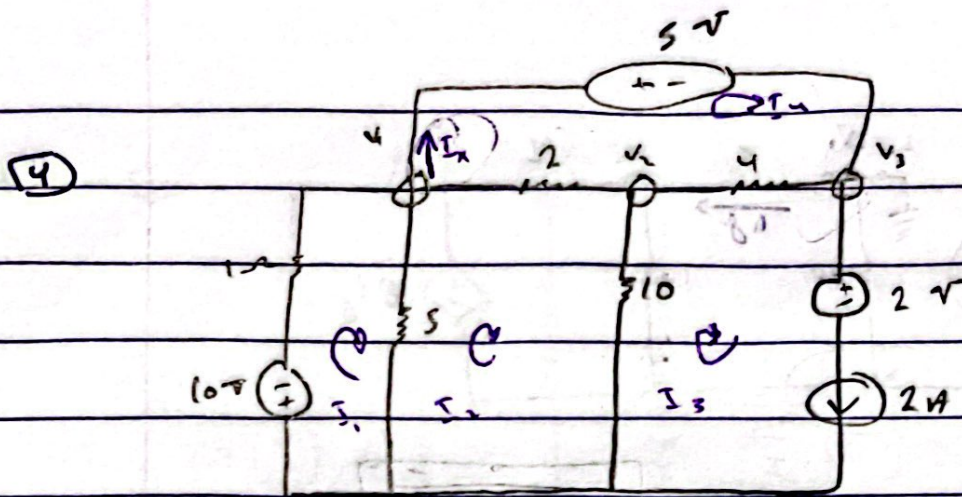 5 V
+ -
I4
V1
Ix
2
V2
4
V3
4
1Ω
5
10
+ -
2 V
10V
- +
I1
I2
I3
2A